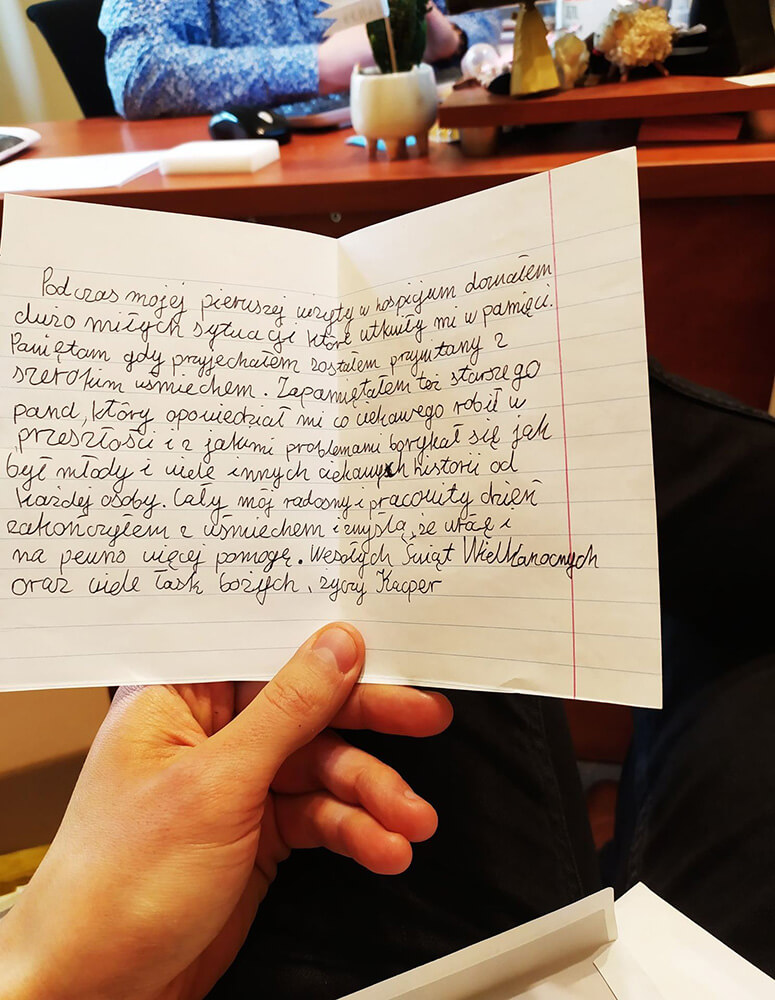 Podczas mojej pierwszej wizyty w hospicjum doznałem
dużo miłych sytuacji które utkwiły mi w pamięci.
Pamiętam gdy przyjechałem zostałem przywitany z
szerokim uśmiechem. Zapamiętałem też starszego
pana, który opowiedział mi co ciekawego robił w
przeszłości i z jakimi problemami borykał się jak
był młody i wiele innych ciekawych historii od
każdej osoby. Cały mój radosny i pracowity dzień
zakończyłem z uśmiechem i myślą, że wrócę i
na pewno więcej pomogę. Wesołych Świąt Wielkanocnych
oraz wiele łask bożych, życzy Kacper